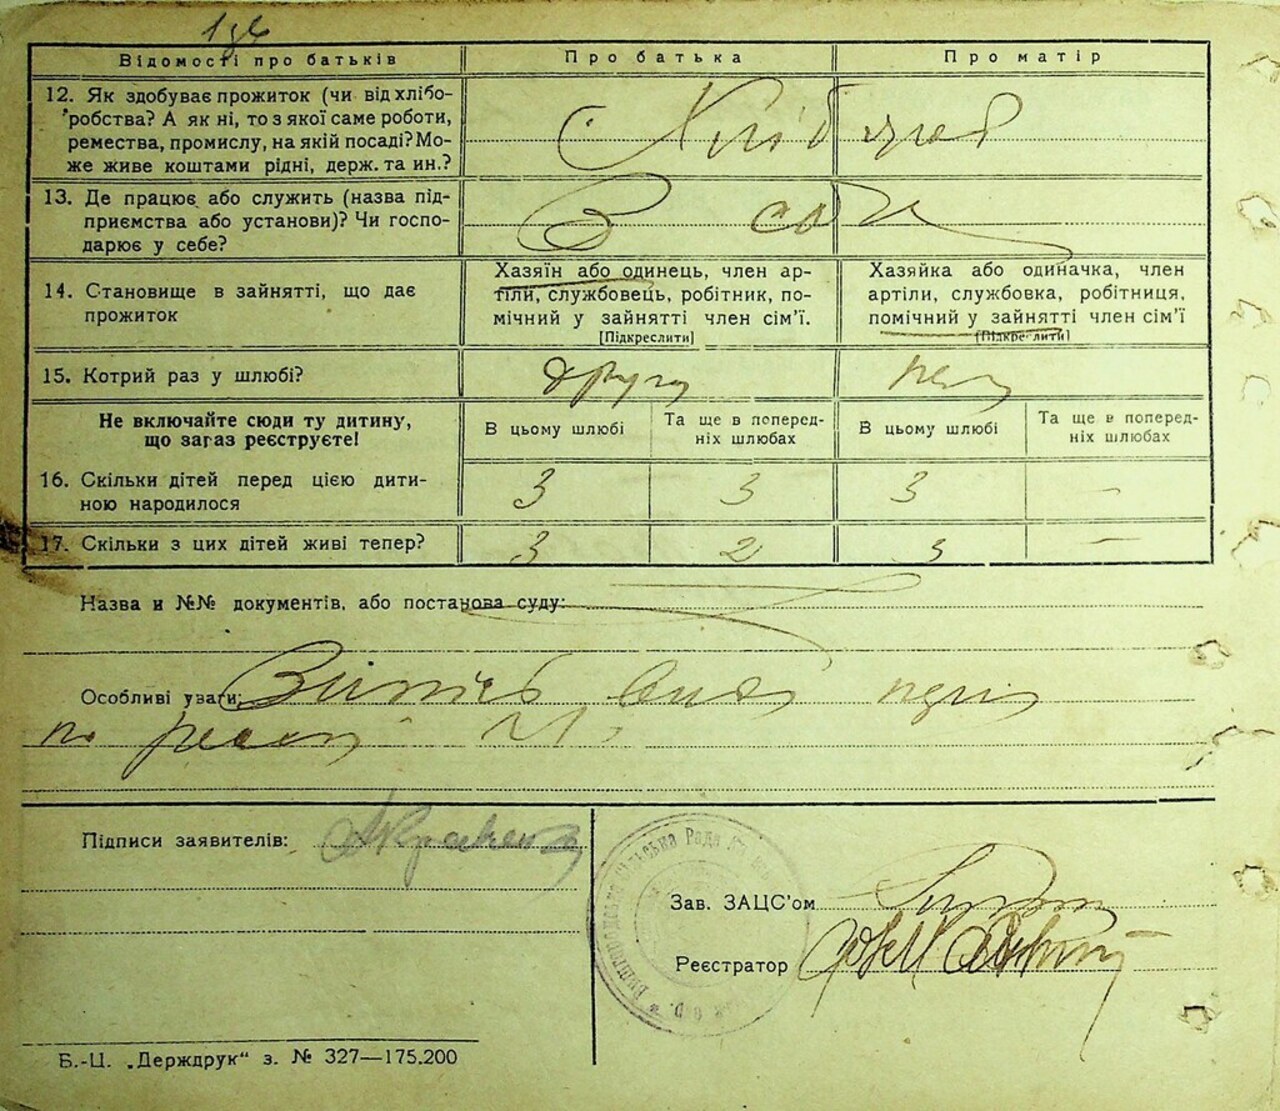 Відомості про батьків
Про батька
Про матір
12. Як здобуває прожиток (чи від хлібо-
робства? А як ні, то з якої саме роботи,
ремества, промислу, на якій посаді? Мо-
же живе коштами рідні, держ. та ин.?
с. Хлібороб
13. Де працює або служить (назва під-
приємства або установи)? Чи госпо-
дарює у себе?
В себе
14. Становище в зайнятті, що дає
прожиток
Хазяїн або одинець, член ар-
тіли, службовець, робітник, по-
мічний у зайнятті член сім'ї.
[Підкреслити]
Хазяйка або одиначка, член
артіли, службовка, робітниця,
помічний у зайнятті член сім'ї
[Підкреслити]
15. Котрий раз у шлюбі?
другий
Не включайте сюди ту дитину,
що зараз реєструєте!
В цьому шлюбі
Та ще в попered-
ніх шлюбах
В цьому шлюбі
Та ще в поперед-
ніх шлюбах
16. Скільки дітей перед цією дити-
ною народилося
3
3
3
—
17. Скільки з цих дітей живі тепер?
3
2
3
—
Назва и №№ документів, або постанова суду:
Особливі уваги:
по
Підписи заявителів:
Зав. ЗАЦС'ом
Реєстратор
Б.-Ц. „Держдрук" з. № 327—175.200